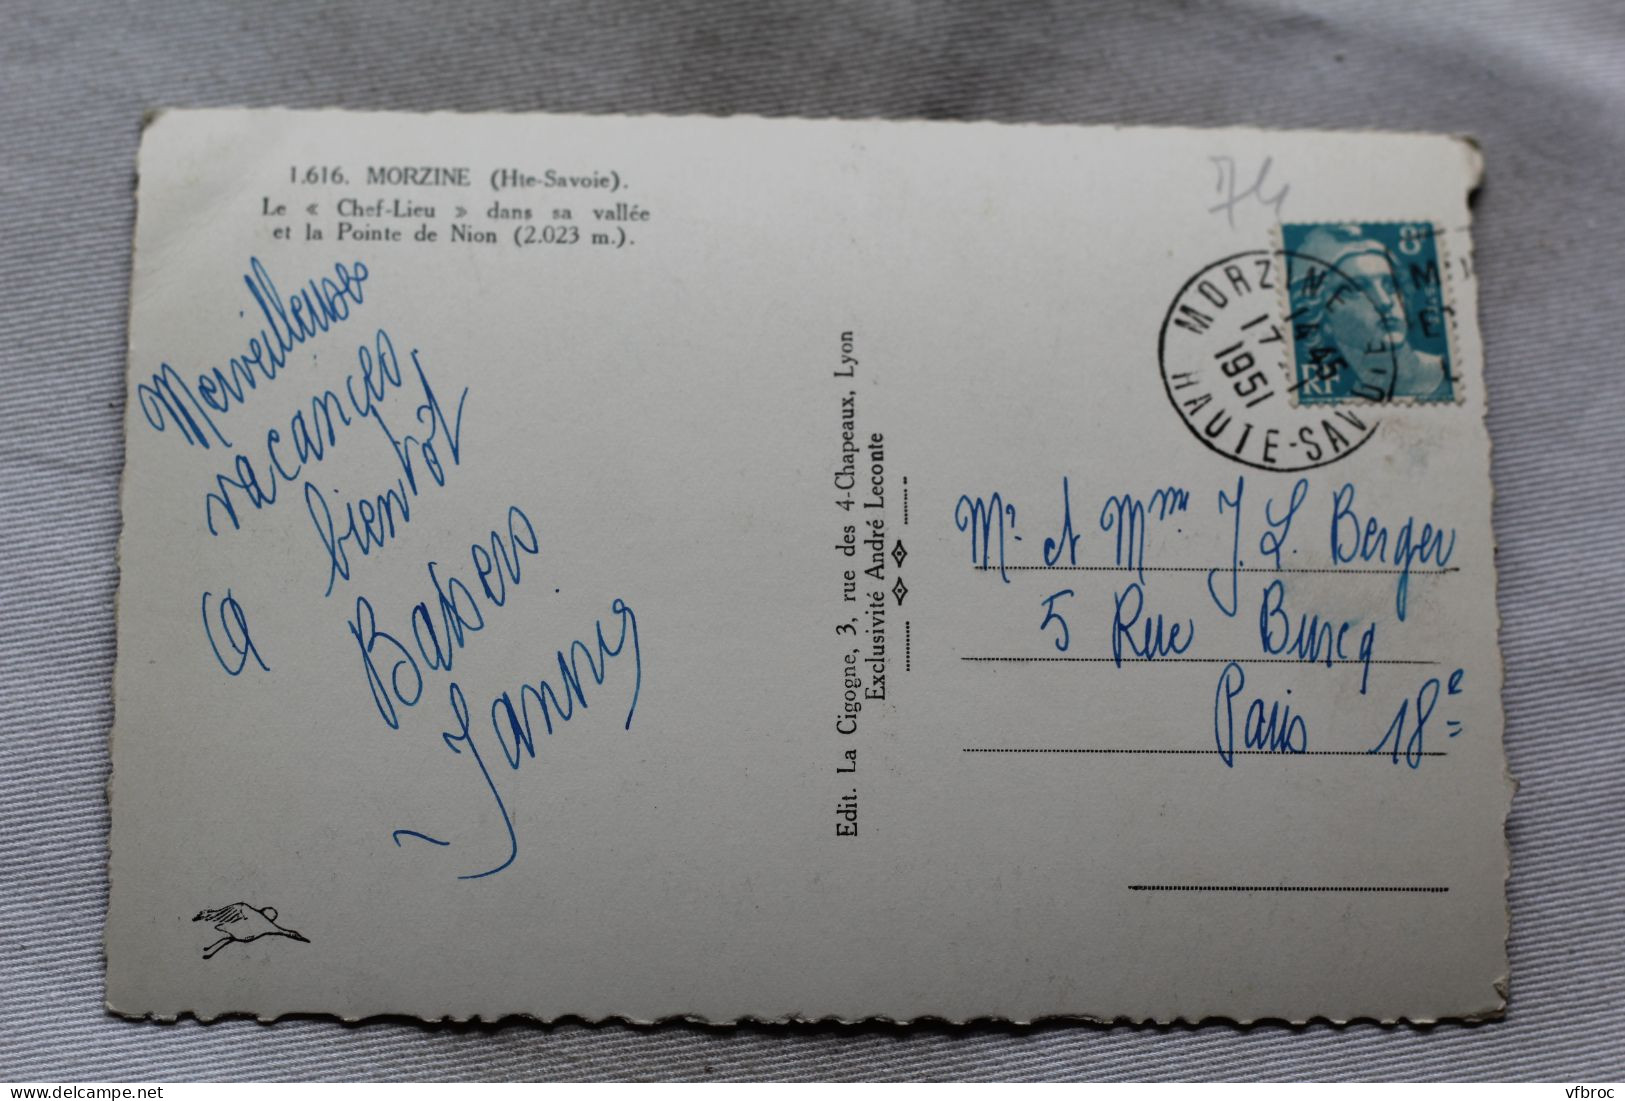 1.616. MORZINE (Hte-Savoie).
Le « Chef-Lieu » dans sa vallée
et la Pointe de Nion (2.023 m.).
Merveilleuses
vacances
bientôt
a
Baisers
Edit. La Cigogne, 3, rue des 4-Chapeaux, Lyon
Exclusivité André Leconte
74
8F
RF
MORZINE
14 45
17
1951
HAUTE-SAVOIE
Mr et Mme J. L. Berger
5 Rue Burcq
Paris 18e
vfbroc